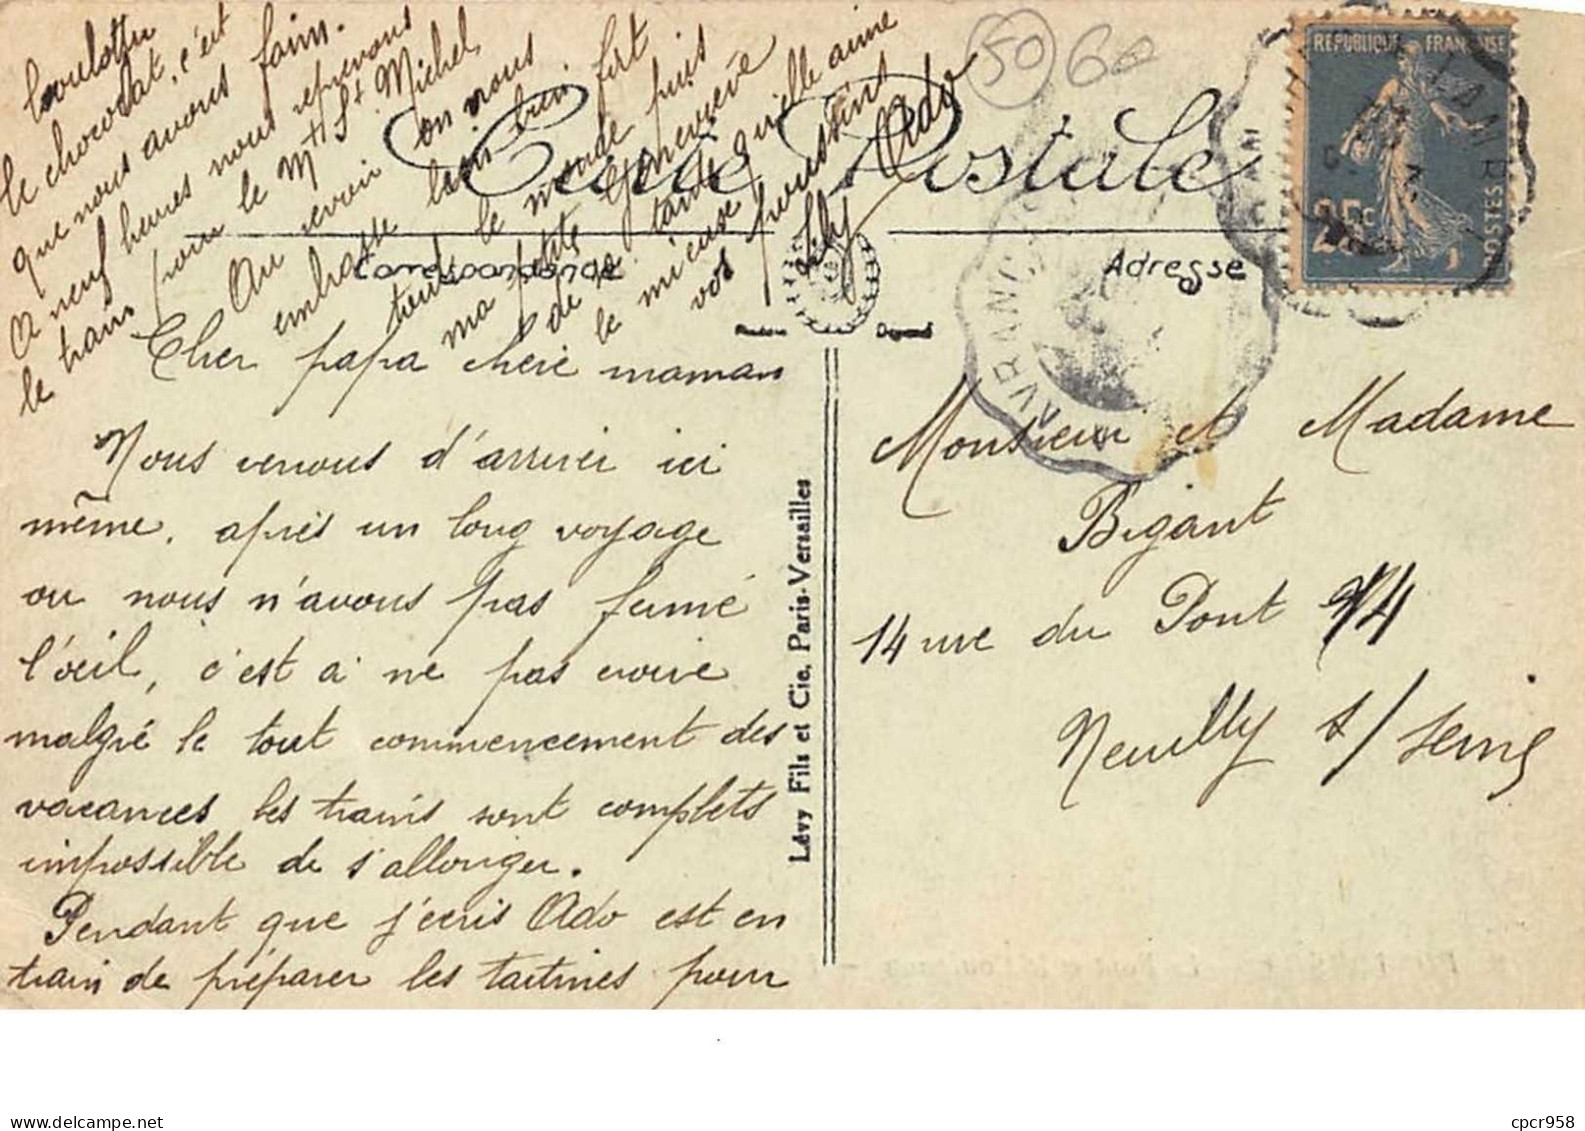 Carte Postale
Correspondance
Adresse
RÉPUBLIQUE FRANÇAISE
25c
POSTES
50 60
AVRANCHES
Cher papa chère maman
Nous venons d'arriver ici
même, après un long voyage
ou nous n'avons pas fermé
l'oeil, c'est à ne pas croire
malgré le tout commencement des
vacances les trains sont complets
impossible de s'allonger.
Pendant que j'écris Ado est en
train de préparer les tartines pour
boulotter
le chocolat, c'est
que nous avons faim.
A neuf heures nous reprenons
le train pour le Mt St Michel
Au revoir on nous
embrasse bien bien fort
tout le monde puis
ma petite Geneviève
de sa tante qu'elle aime
le mieux
vos poussins
Lily Ado
Lévy Fils et Cie, Paris-Versailles
Monsieur et Madame
Bigant
14 rue du Pont 14
Neuilly s/ Seine
cpcr958